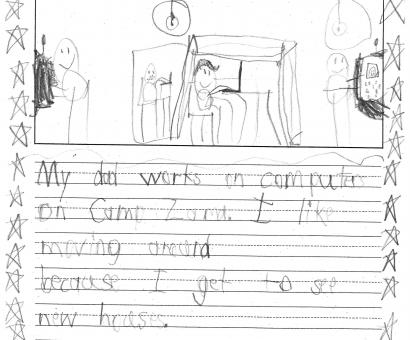 My dad works on computers
on Camp Zama. I like
moving around
because I get to see
new houses.